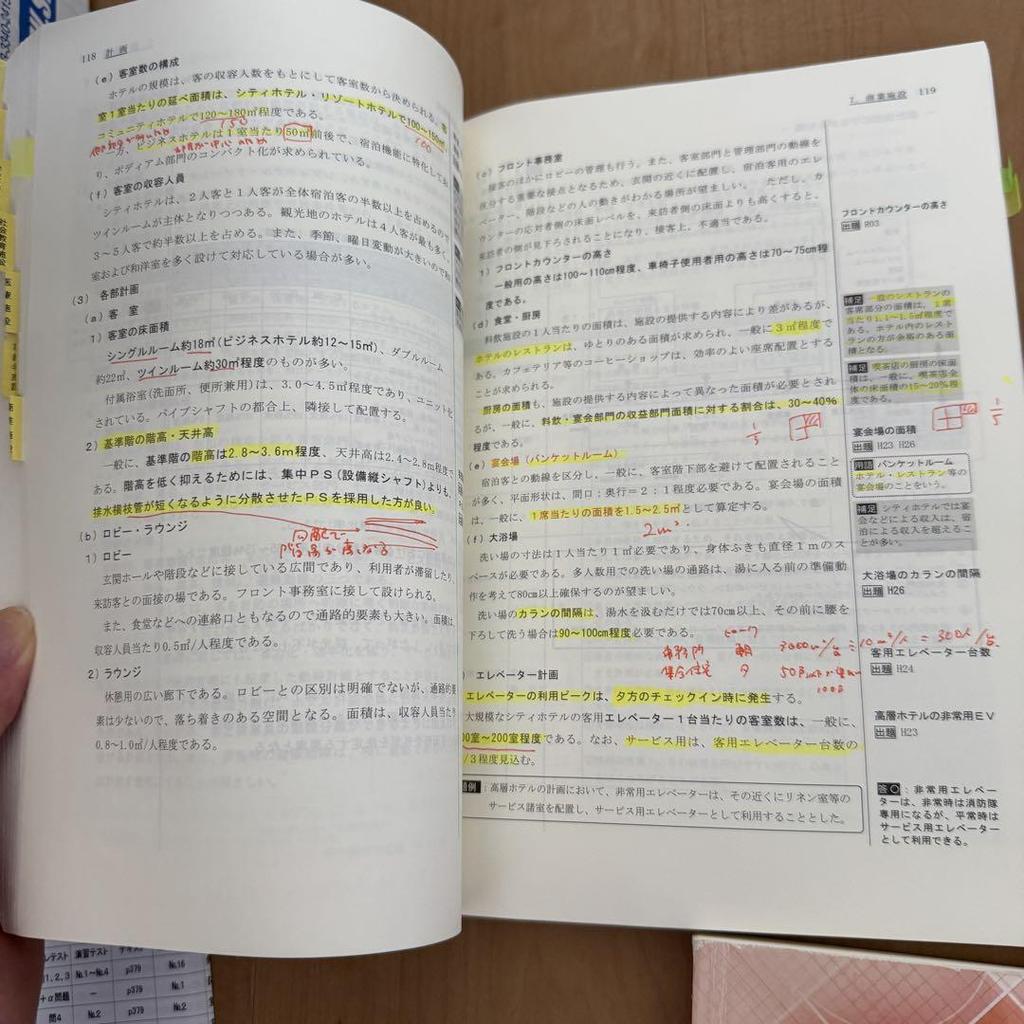 118 計画
(e) 客室数の構成
ホテルの規模は、客の収容人数をもとにして客室数から決められるが、
室1室当たりの延べ面積は、シティホテル・リゾートホテルで100~150㎡
コミュニティホテルで120~180㎡程度である。
150
一方、ビジネスホテルは1室当たり50㎡前後で、宿泊機能に特化して
り、ポディアム部門のコンパクト化が求められている。
(f) 客室の収容人員
シティホテルは、2人客と1人客が全体宿泊客の半数以上を占めるので
ツインルームが主体となりつつある。観光地のホテルは4人客が最も多く、
3~5人客で約半数以上を占める。また、季節、曜日変動が大きいので和
室および和洋室を多く設けて対応している場合が多い。
(3) 各部計画
(a) 客室
1) 客室の床面積
シングルルーム約18㎡(ビジネスホテル約12~15㎡)、ダブルルーム
約22㎡、ツインルーム約30㎡程度のものが多い。
付属浴室(洗面所、便所兼用)は、3.0~4.5㎡程度であり、ユニット化
されている。パイプシャフトの都合上、隣接して配置する。
2) 基準階の階高・天井高
一般に、基準階の階高は2.8~3.6m程度、天井高は2.4~2.8m程度で
ある。階高を低く抑えるためには、集中PS(設備縦シャフト)よりも、
排水横枝管が短くなるように分散させたPSを採用した方が良い。
(b) ロビー・ラウンジ
1) ロビー
玄関ホールや階段などに接している広間であり、利用者が滞留したり、
来訪客との面接の場である。フロント事務室に接して設けられる。
また、食堂などへの連絡口ともなるので通路的要素も大きい。面積は、
収容人員当たり0.5㎡/人程度である。
2) ラウンジ
休憩用の広い廊下である。ロビーとの区別は明確でないが、通路的要
素は少ないので、落ち着きのある空間となる。面積は、収容人員当たり
0.8~1.0㎡/人程度である。
7. 商業施設 119
(c) フロント事務室
接客のほかにロビーの管理も行う。また、客室部門と管理部門の動線を
区分する重要な接点となるため、玄関の近くに配置し、宿泊客用のエレ
ベーター、階段などの人の動きがわかる場所が望ましい。 ただし、カ
ウンターの応対者側の床面レベルを、来訪者側の床面よりも高くすると、
来訪者の側が見下ろされることになり、接客上、不適当である。
1) フロントカウンターの高さ
一般用の高さは100~110cm程度、車椅子使用者用の高さは70~75cm程
度である。
(d) 食堂・厨房
料飲施設の1人当たりの面積は、施設の提供する内容により差があるが、
ホテルのレストランは、ゆとりのある面積が求められ、一般に3㎡程度で
ある。カフェテリア等のコーヒーショップは、効率のよい座席配置とする
ことが求められる。
厨房の面積も、施設の提供する内容によって異なった面積が必要とされ
るが、一般に、料飲・宴会部門の収益部門面積に対する割合は、30~40%
程度である。
1/5
(e) 宴会場(バンケットルーム)
宿泊客との動線を区分し、一般に、客室階下部を避けて配置されること
が多く、平面形状は、間口:奥行=2:1程度必要である。宴会場の面積
は、一般に、1席当たりの面積を1.5~2.5㎡として算定する。
2㎡
(f) 大浴場
洗い場の寸法は1人当たり1㎡必要であり、身体ふきも直径1mのス
ペースが必要である。多人数用での洗い場の通路は、湯に入る前の準備動
作を考えて80cm以上確保するのが望ましい。
洗い場のカランの間隔は、湯水を汲むだけでは70cm以上、その前に腰を
下ろして洗う場合は90~100cm程度必要である。
ピーク
事務所 朝
集合住宅 夕
エレベーター計画
エレベーターの利用ピークは、夕方のチェックイン時に発生する。
大規模なシティホテルの客用エレベーター1台当たりの客室数は、一般に、
00室~200室程度である。なお、サービス用は、客用エレベーター台数の
/3程度見込む。
題例:高層ホテルの計画において、非常用エレベーターは、その近くにリネン室等の
サービス諸室を配置し、サービス用エレベーターとして利用することとした。
フロントカウンターの高さ
出題 R03
補足 一般のレストランの
客席部分の面積は、1席
当たり1.1~1.5㎡程度で
ある。ホテル内のレスト
ランの方が余裕のある面
積となる。
補足 喫茶店の厨房の床面
積は、一般に、喫茶店全
体の床面積の15~20%程
度である。
1/5
宴会場の面積
出題 H23 H26
用語 バンケットルーム
ホテル・レストラン等の
宴会場のことをいう。
補足 シティホテルでは宴
会などによる収入は、宿
泊による収入を超えるこ
とが多い。
大浴場のカランの間隔
出題 H26
客用エレベーター台数
出題 H24
高層ホテルの非常用EV
出題 H23
答〇:非常用エレベー
ターは、非常時は消防隊
専用になるが、平常時は
サービス用エレベーター
として利用できる。
演習テスト
1,2,3 №1~№4 p379 №16
+α問題 － p379 №1
問4 №2 p379 №2